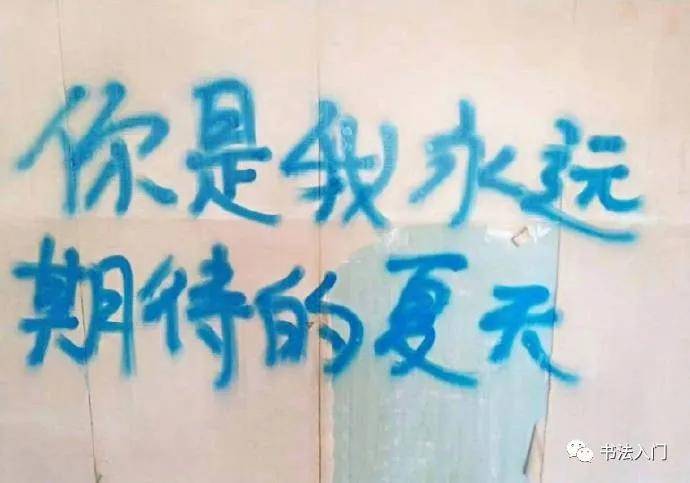 你是我永远
期待的夏天
书法入门